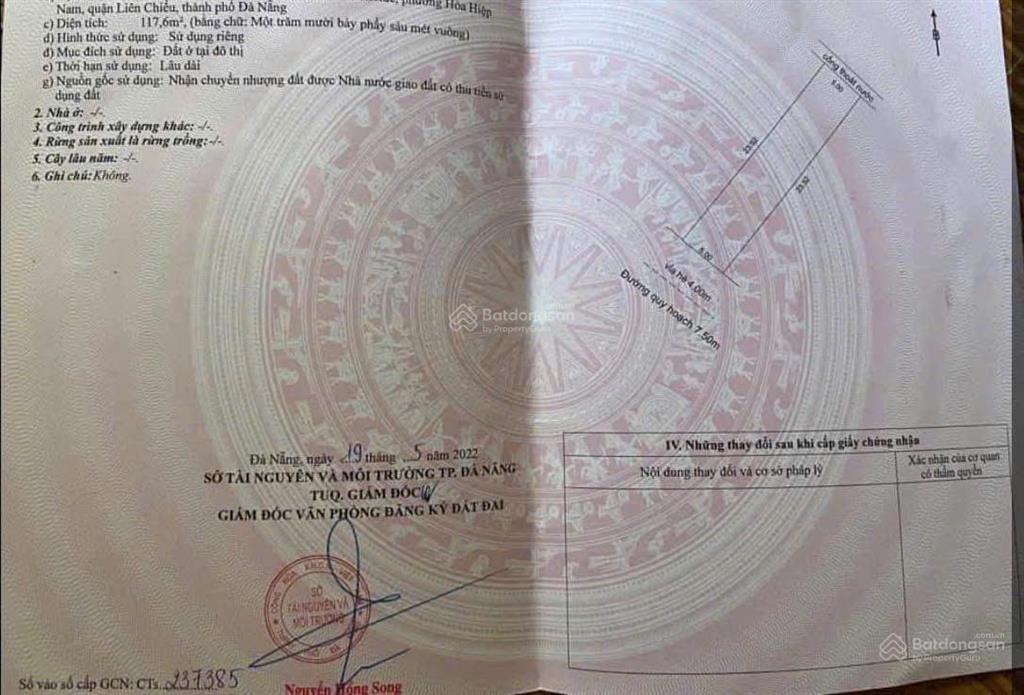 phường Hòa Hiệp
Nam, quận Liên Chiểu, thành phố Đà Nẵng
c) Diện tích: 117,6m², (bằng chữ: Một trăm mười bảy phẩy sáu mét vuông)
d) Hình thức sử dụng: Sử dụng riêng
đ) Mục đích sử dụng: Đất ở tại đô thị
e) Thời hạn sử dụng: Lâu dài
g) Nguồn gốc sử dụng: Nhận chuyển nhượng đất được Nhà nước giao đất có thu tiền sử
dụng đất
2. Nhà ở: -/-.
3. Công trình xây dựng khác: -/-.
4. Rừng sản xuất là rừng trồng: -/-.
5. Cây lâu năm: -/-.
6. Ghi chú: Không.
cống thoát nước
5.00
23.52
23.52
5.00
vỉa hè 4.00m
Đường quy hoạch 7.50m
Batdongsan
by PropertyGuru
Đà Nẵng, ngày 19 tháng 5 năm 2022
SỞ TÀI NGUYÊN VÀ MÔI TRƯỜNG TP. ĐÀ NẴNG
TUQ. GIÁM ĐỐC
GIÁM ĐỐC VĂN PHÒNG ĐĂNG KÝ ĐẤT ĐAI
SỞ
TÀI NGUYÊN VÀ
MÔI TRƯỜNG
Nguyễn Hồng Song
Số vào sổ cấp GCN: CTs 237385
IV. Những thay đổi sau khi cấp giấy chứng nhận
Nội dung thay đổi và cơ sở pháp lý
Xác nhận của cơ quan
có thẩm quyền
Batdongsan.com.vn
by PropertyGuru